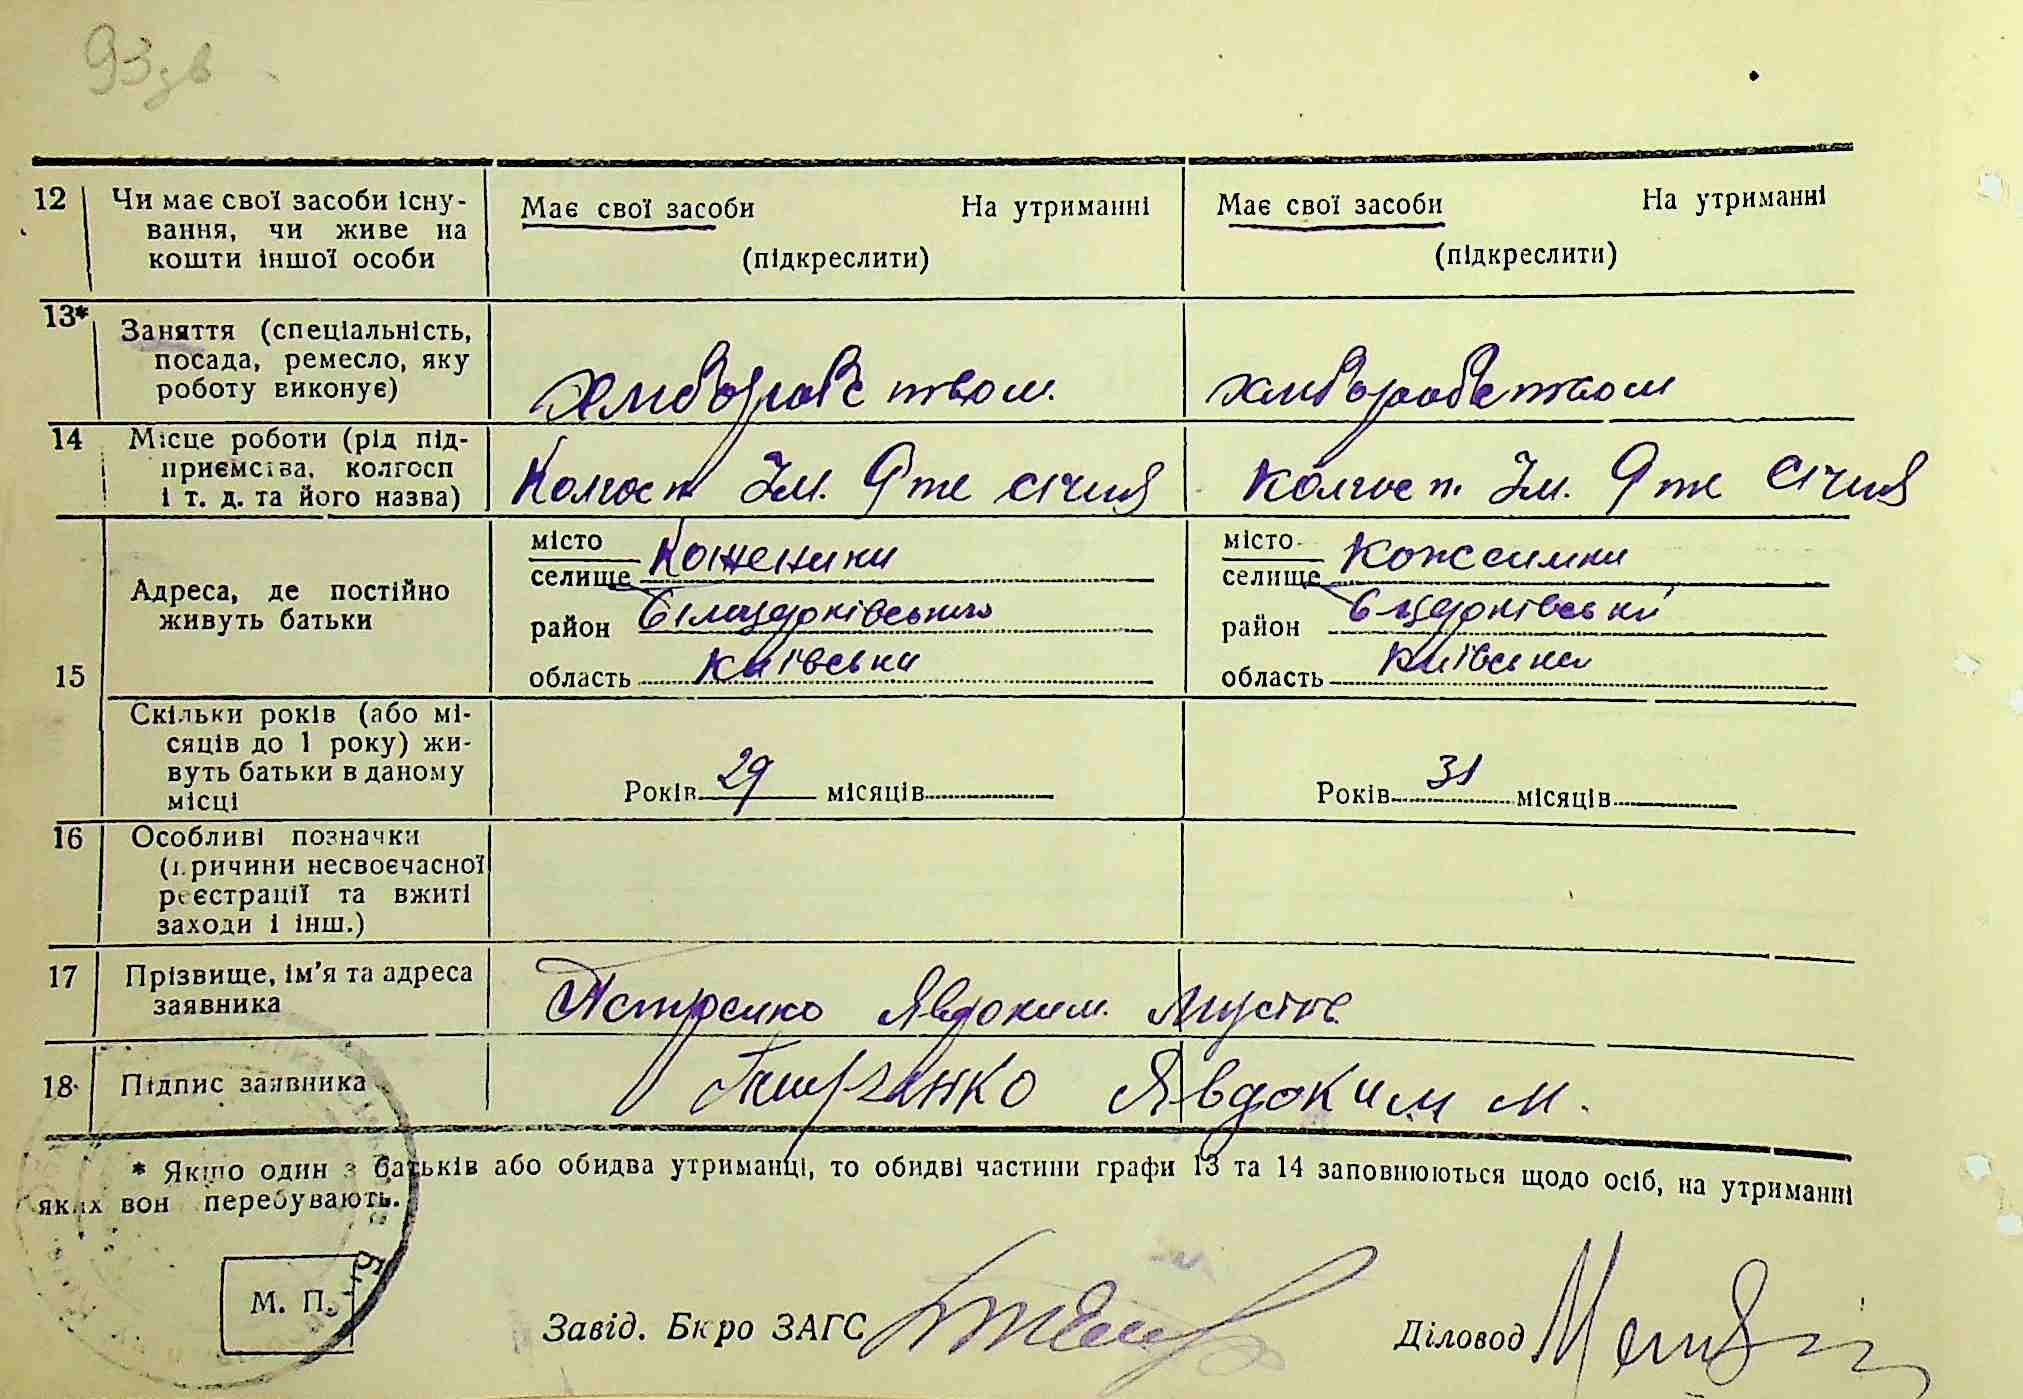 93зв
12 Чи має свої засоби існу-
вання, чи живе на
кошти іншої особи
Має свої засоби На утриманні
(підкреслити)
Має свої засоби На утриманні
(підкреслити)
13* Заняття (спеціальність,
посада, ремесло, яку
роботу виконує)
14 Місце роботи (рід під-
приємства, колгосп
і т. д. та його назва)
Колгосп Ім. 9 те січня
Колгосп. Ім. 9 те січня
15
Адреса, де постійно
живуть батьки
місто
селище Коженики
район Білоцерківського
область Київська
місто
селище Коженики
район Б церківський
область Київська
Скільки років (або мі-
сяців до 1 року) жи-
вуть батьки в даному
місці
Років 29 місяців
Років 31 місяців
16 Особливі позначки
(причини несвоєчасної
реєстрації та вжиті
заходи і інш.)
17 Прізвище, ім'я та адреса
заявника
Явдоким
18 Підпис заявника
Явдоким М.
* Якщо один з батьків або обидва утриманці, то обидві частини графи 13 та 14 заповнюються щодо осіб, на утриманні
яких вон перебувають.
М. П.
Завід. Бюро ЗАГС
Діловод